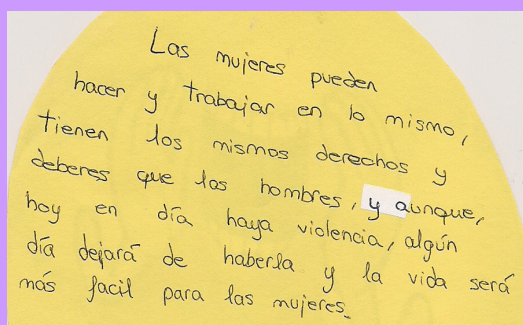 Las mujeres pueden
hacer y trabajar en lo mismo,
tienen los mismos derechos y
deberes que los hombres, y aunque,
hoy en día haya violencia, algún
día dejará de haberla y la vida será
más facil para las mujeres.